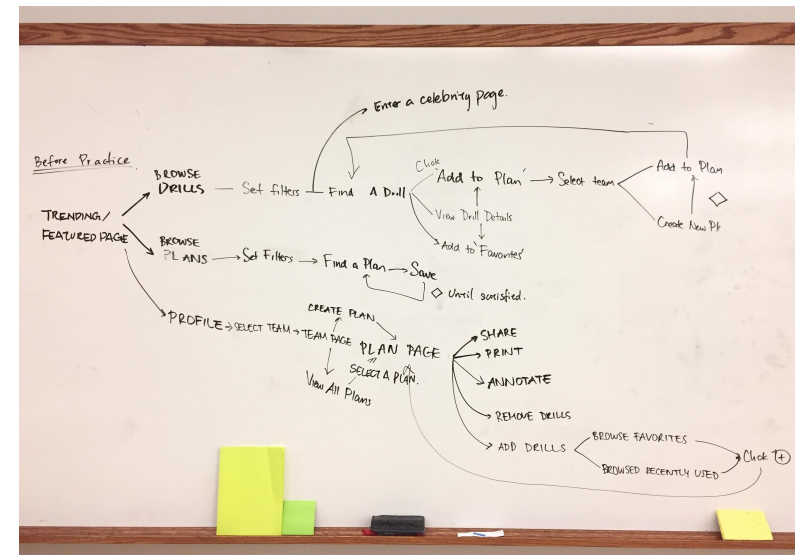 Enter a celebrity page.
Before Practice
BROWSE
DRILLS
Set filters
Find A Drill
Click
'Add to Plan'
Select team
Add to Plan
Create New Pl
View Drill Details
Add to 'Favorites'
TRENDING/
FEATURED PAGE
BROWSE
PLANS
Set Filters
Find a Plan
Save
Until satisfied.
PROFILE
SELECT TEAM
TEAM PAGE
CREATE PLAN
PLAN PAGE
SELECT A PLAN.
View All Plans
SHARE
PRINT
ANNOTATE
REMOVE DRILLS
ADD DRILLS
BROWSE FAVORITES
BROWSED RECENTLY USED
Click +